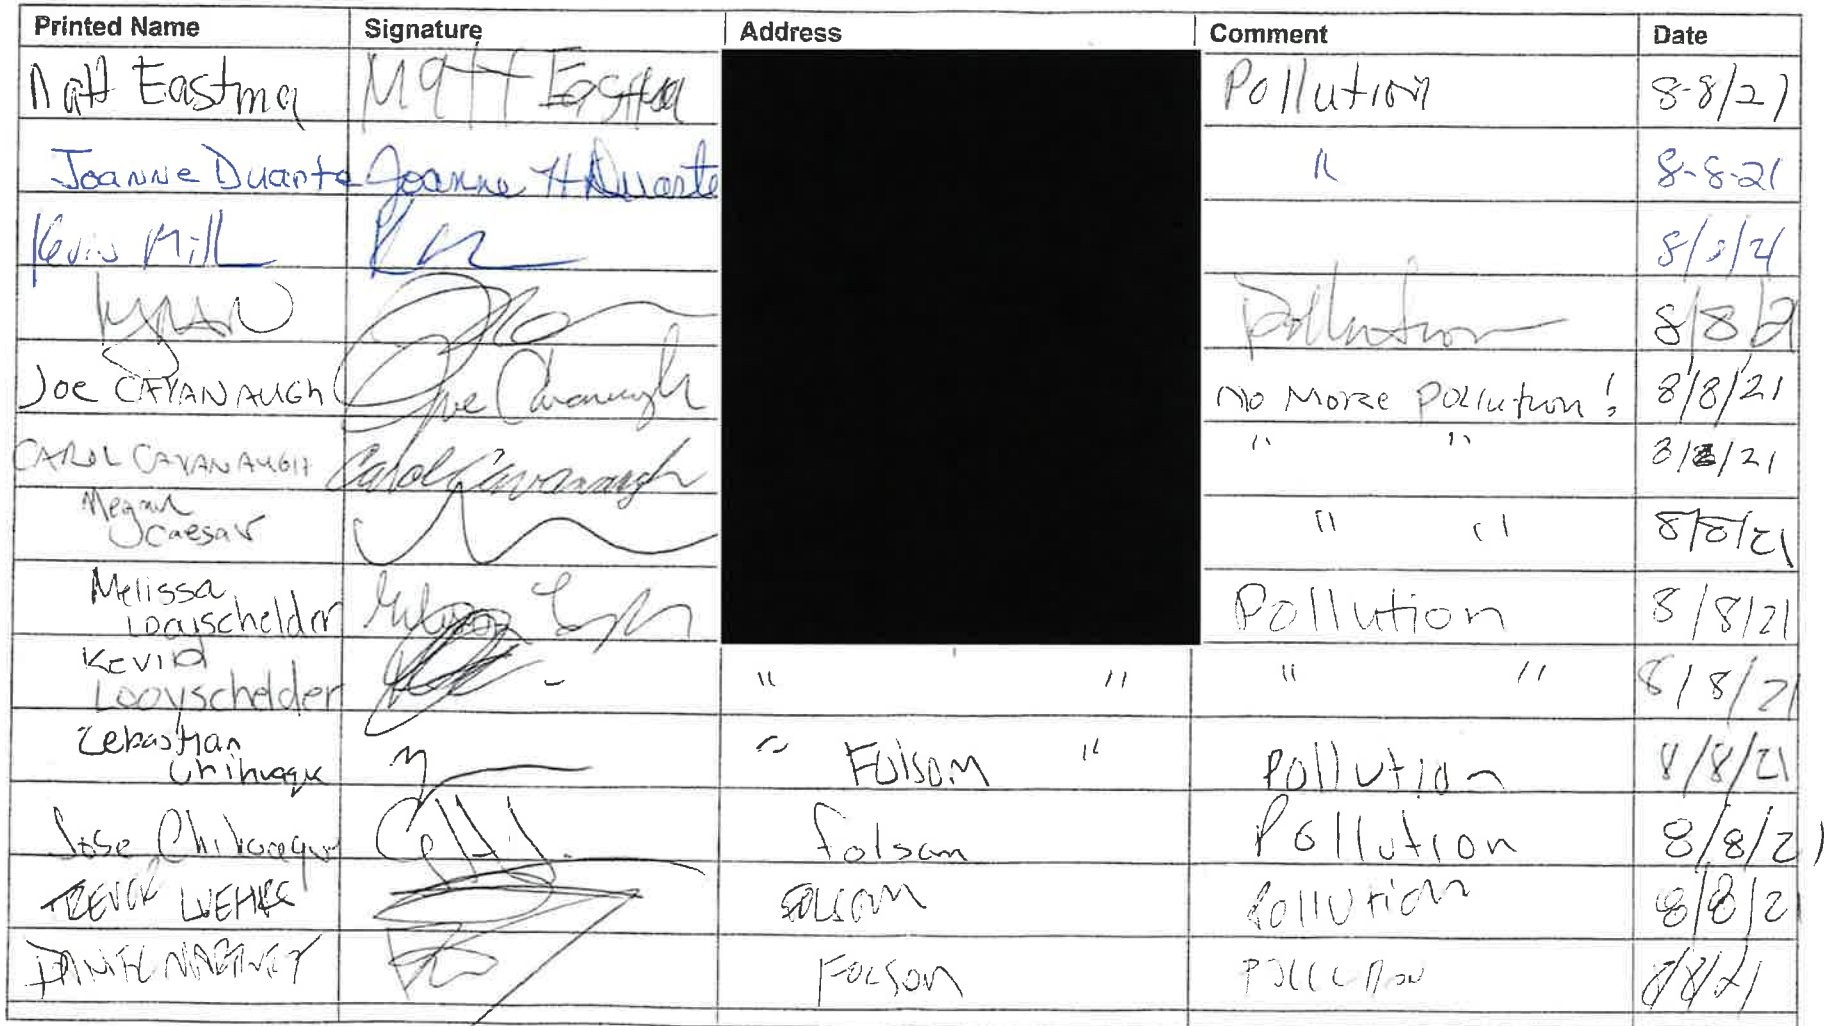 Printed Name Signature Address Comment Date
Matt Eastma Matt Eastma Pollution 8-8/21
Joanne Duarte Joanne H Duarte " 8-8-21
Kevin Mill 8/8/21
Pollution 8/8/21
Joe CAVANAUGh Joe Cavanaugh No More Pollution! 8/8/21
CAROL CAVANAUGH Carol Cavanaugh " " 8/8/21
Megan
Caesar " " 8/8/21
Melissa
Looyschelder Pollution 8/8/21
Kevin
Looyschelder " " " " 8/8/21
Zebastian
" Folsom " Pollution 8/8/21
Jose Folsom Pollution 8/8/21
Folsom Pollution 8/8/21
Folsom Pollution 8/8/21